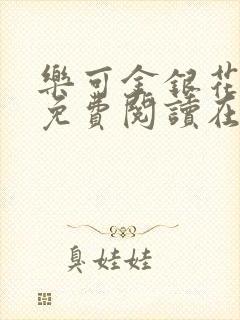 樂可金銀花
免費閱讀在
臭娃娃